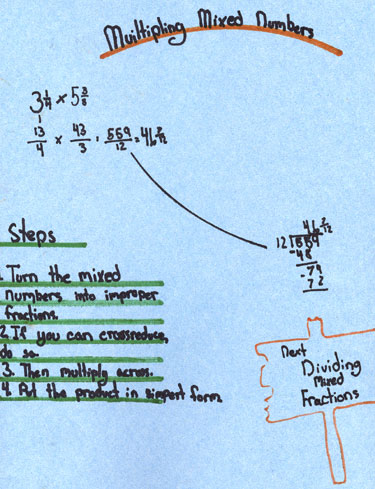 Muiltipling Mixed Numbers
3 1/4 × 5 3/8
13/4 × 43/3 = 559/12 = 46 7/12
46 7/12
12 559
-48
79
-72
Steps
1. Turn the mixed
numbers into improper
fractions.
2. If you can crossreduce,
do so.
3. Then multiply across.
4. Put the product in simpest form.
Next
Dividing
Mixed
Fractions